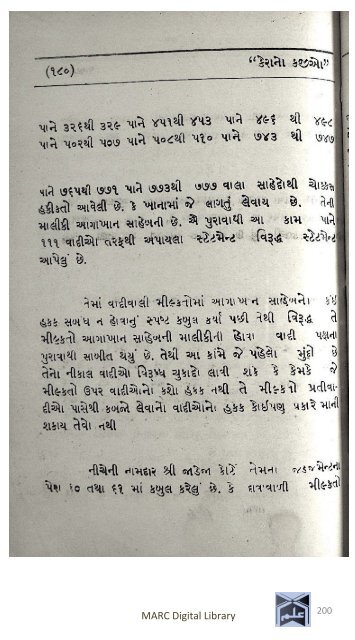 (૧૮૦)
“કેરાનો કજીઓ”
પાને ૩૨૬થી ૩૨૯ પાને ૪૫૧થી ૪૫૩ પાને ૪૯૬ થી ૪૯૮
પાને ૫૦૨થી ૫૦૭ પાને ૫૦૮થી ૫૧૦ પાને ૭૪૩ થી ૭૪૭
પાને ૭૬૫થી ૭૭૧ પાને ૭૭૩થી ૭૭૭ વાલા સાહેદોથી ચોક્કસ
હકીકતો આવેલી છે. કે ખાનામાં જે લાગતું લેવાય છે. તેની
માલીકી આગાખાન સાહેબની છે. એ પુરાવાથી આ કામ પાને
૧૧૧ વાદીઓ તરફથી અંપાયલા સ્ટેટમેન્ટ વિરૂદ્ધ સ્ટેટમેન્ટ
આપેલું છે.
તેમાં વાદીવાલી મીલ્કતોમાં આગાખાન સાહેબનો કંઈ
હકક સબંધ ન હોવાનું સ્પષ્ટ કબુલ કર્યા પછી તેથી વિરૂદ્ધ તે
મીલ્કતો આગાખાન સાહેબની માલીકીની હોવા વાદી પક્ષના
પુરાવાથી સાબીત થયું છે. તેથી આ કામે જે પહેલો મુદ્દો છે
તેનો નીકાલ વાદીઓ વિરૂધ્ધ ચુકાદો લાવી શકે કે કેમકે જે
મીલ્કતો ઉપર વાદીઓનો કશો હકક નથી તે મીલ્કતો પ્રતીવા-
દીઓ પાસેથી કબજે લેવાનો વાદીઓનો હકક કોઈપણ પ્રકારે માની
શકાય તેવો નથી
નીચેની નામદાર શ્રી જાડેજા કોર્ટે તેમના જડજમેન્ટના
પેરા ૬૦ તથા ૬૧ માં કબુલ કરેલું છે. કે દાવાવાળી મીલ્કતો
MARC Digital Library
200